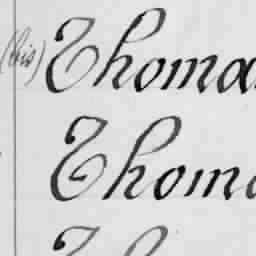 (bis) Thoma
Thoma
Th